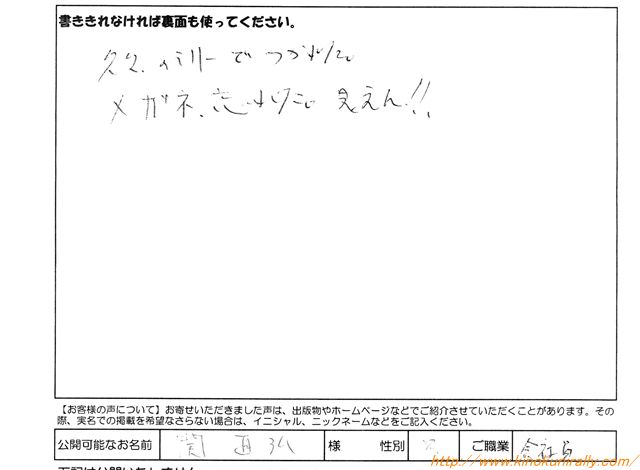 書ききれなければ裏面も使ってください。
久々、ハミリーで つかれた。
メガネ、忘れた。 見えん!!
【お客様の声について】お寄せいただきました声は、出版物やホームページなどでご紹介させていただくことがあります。その
際、実名での掲載を希望なさらない場合は、イニシャル、ニックネームなどをご記入ください。
公開可能なお名前 関 様 性別 ご職業 会社員
http://www.kinokunirally.com/